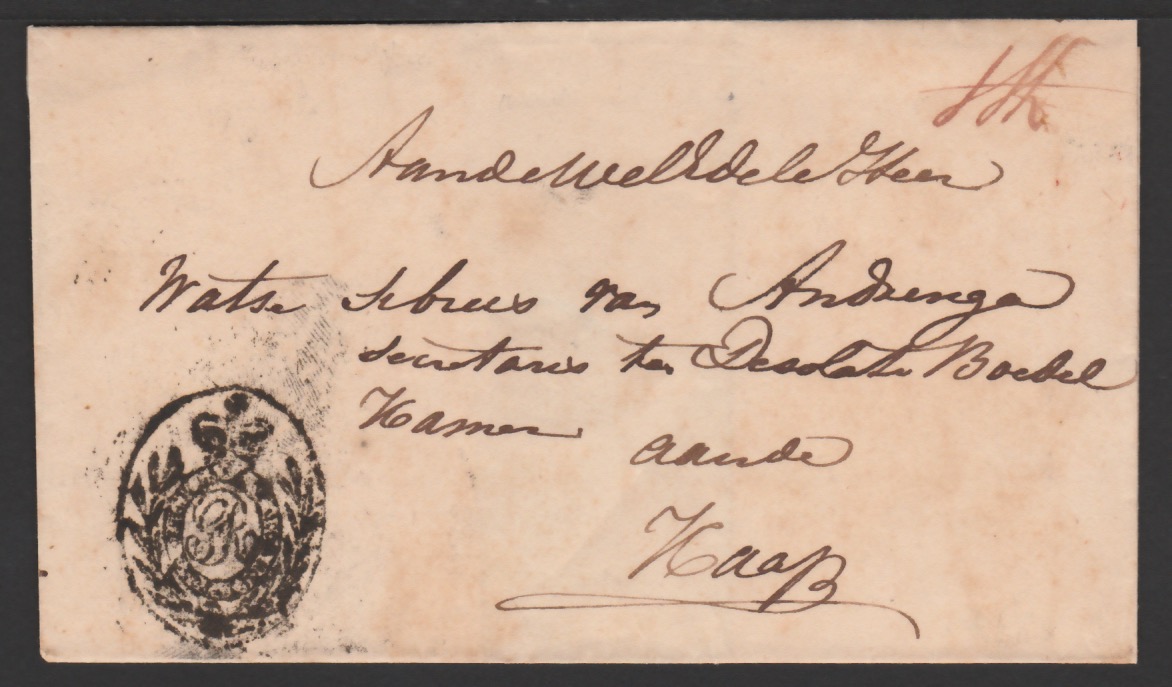 Aan de Wel Edele Heer
Watse Sibius van Andringa
Secretaris ter Desolate Boedel
Kamer
aan de
Kaap
GR